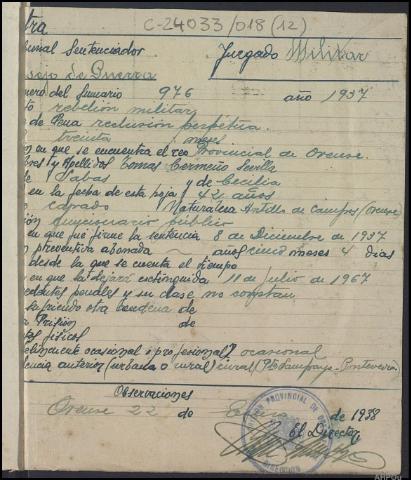 C-24033/018 (12)
tra
unal Sentenciador Juzgado Militar
sejo de Guerra
ero del Sumario 976 año 1937
to rebelion militar
de Pena reclusión perpétua.
treinta
en que se encuentra el reo Provincial de Orense.
bres y Apellidos Tomas Cermeño Sevilla
de Sabas y de Cecilia
en la fecha de esta hoja 42 años
casado Naturaleza de Campos (Orense)
ión público
en que fue firme la sentencia 8 de Diciembre de 1937
n preventiva abonada años cinco meses 4 dias
desde la que se cuenta el tiempo
en que la dejará extinguida 11 de Julio de 1967
cedentes penales y su clase no constan
sufriendo esta condena de
a Prisión de
tos fisicos
elincuente ocasional ó profesional) ocasional
encia anterior (urbana o rural) rural (Pontevedra)
Observaciones
Orense 22 de Enero de 1938
El Director
PROVINCIAL DE